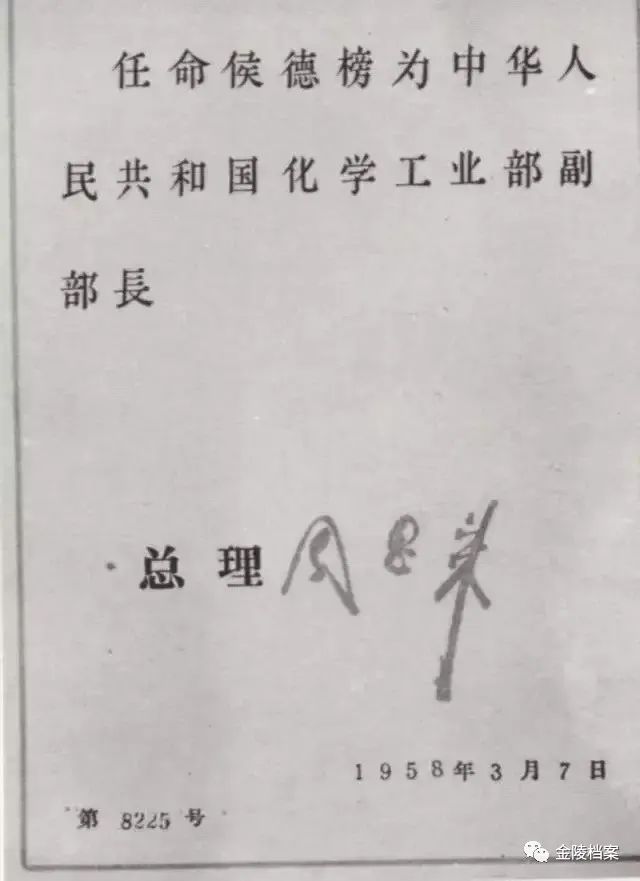 任命侯德榜为中华人
民共和国化学工业部副
部長
总理 周恩来
1958年3月7日
第 8225 号
金陵档案